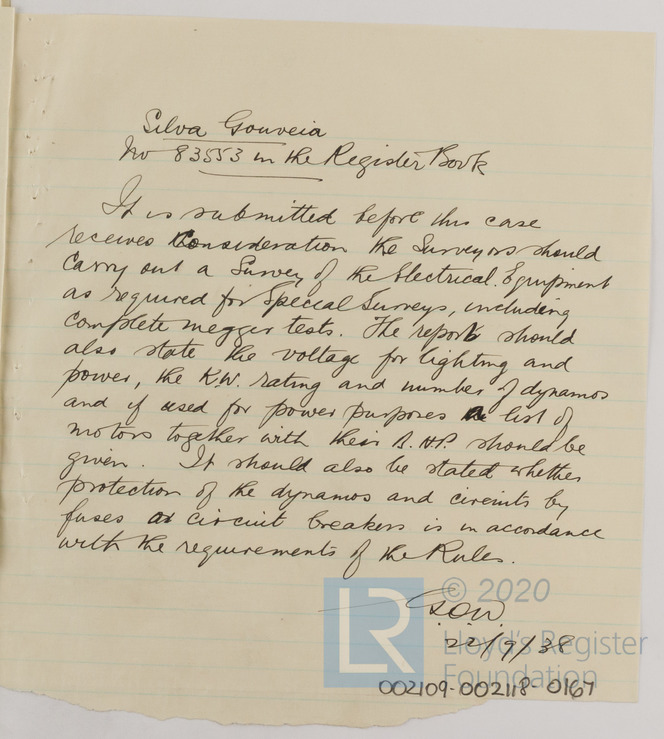 Silva Gouveia
No 83553 in the Register Book
It is submitted before this case
receives consideration the Surveyors should
carry out a Survey of the Electrical Equipment
as required for Special Surveys, including
complete megger tests. The report should
also state the voltage for lighting and
power, the K.W. rating and number of dynamos
and if used for power purposes a list of
motors together with their B.H.P. should be
given. It should also be stated whether
protection of the dynamos and circuits by
fuses or circuit breakers is in accordance
with the requirements of the Rules.
G.O.W.
22/9/38
LR
© 2020
Lloyd's Register
Foundation
002109-002118-0167